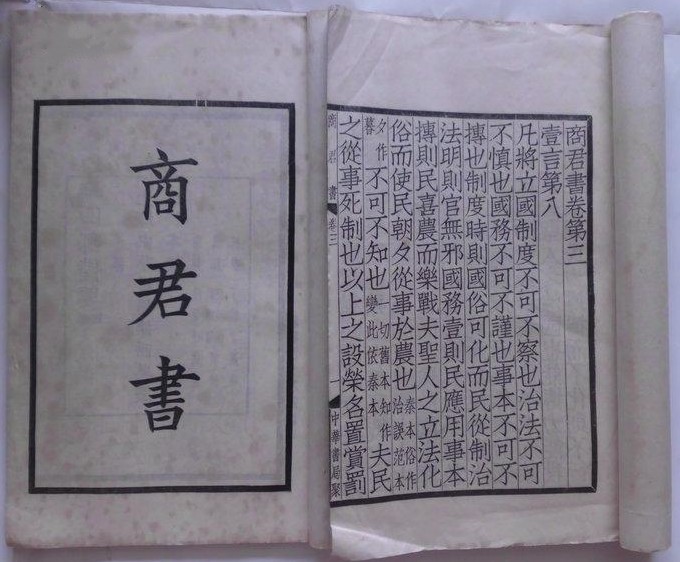 商君書
商君書卷第三
壹言第八
凡將立國制度不可不察也治法不可
不慎也國務不可不謹也事本不可不
摶也制度時則國俗可化而民從制治
法明則官無邪國務壹則民應用事本
摶則民喜農而樂戰夫聖人之立法化
俗而使民朝夕從事於農也秦本俗作治誤范本
夕作暮不可不知也一切舊本知作變此依秦本夫民
之從事死制也以上之設榮名置賞罰
商君書 卷三 一 中華書局聚